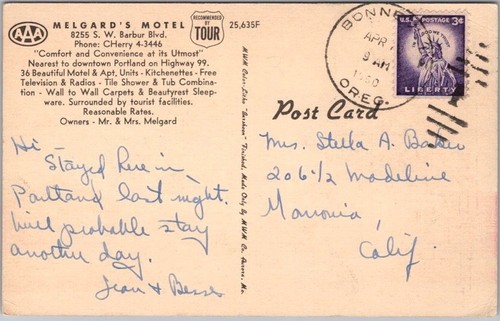 AAA
MELGARD'S MOTEL
8255 S. W. Barbur Blvd.
Phone: CHerry 4-3446
"Comfort and Convenience at its Utmost"
Nearest to downtown Portland on Highway 99.
36 Beautiful Motel & Apt. Units - Kitchenettes - Free
Television & Radios - Tile Shower & Tub Combina-
tion - Wall to Wall Carpets & Beautyrest Sleep-
ware. Surrounded by tourist facilities.
Reasonable Rates.
Owners - Mr. & Mrs. Melgard
RECOMMENDED BY
TOUR
25,635F
Hi -
Stayed here in
Portland last night.
Will probable stay
another day.
Jean & Besse
Made Only by MWM Co. Aurora, Mo.
BONNE
APR
9 AM
OREG.
U.S. POSTAGE 3¢
IN GOD WE TRUST
LIBERTY
Post Card
Mrs. Stella A.
206-1/2 Madeline
Monrovia,
Calif.